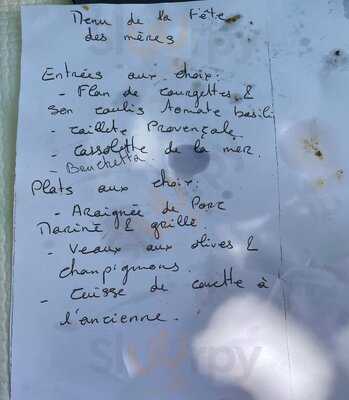 Menu de la Fête
des mères
Entrées aux choix:
- Flan de courgettes &
son coulis tomate basilic
- Caillete Provençale
- Cassolette de la mer.
- Bruchetta.
Plats aux choix:
- Araignée de Porc
Mariné & grillé.
- Veaux aux olives &
champignons.
- Cuisse de canette à
l'ancienne.